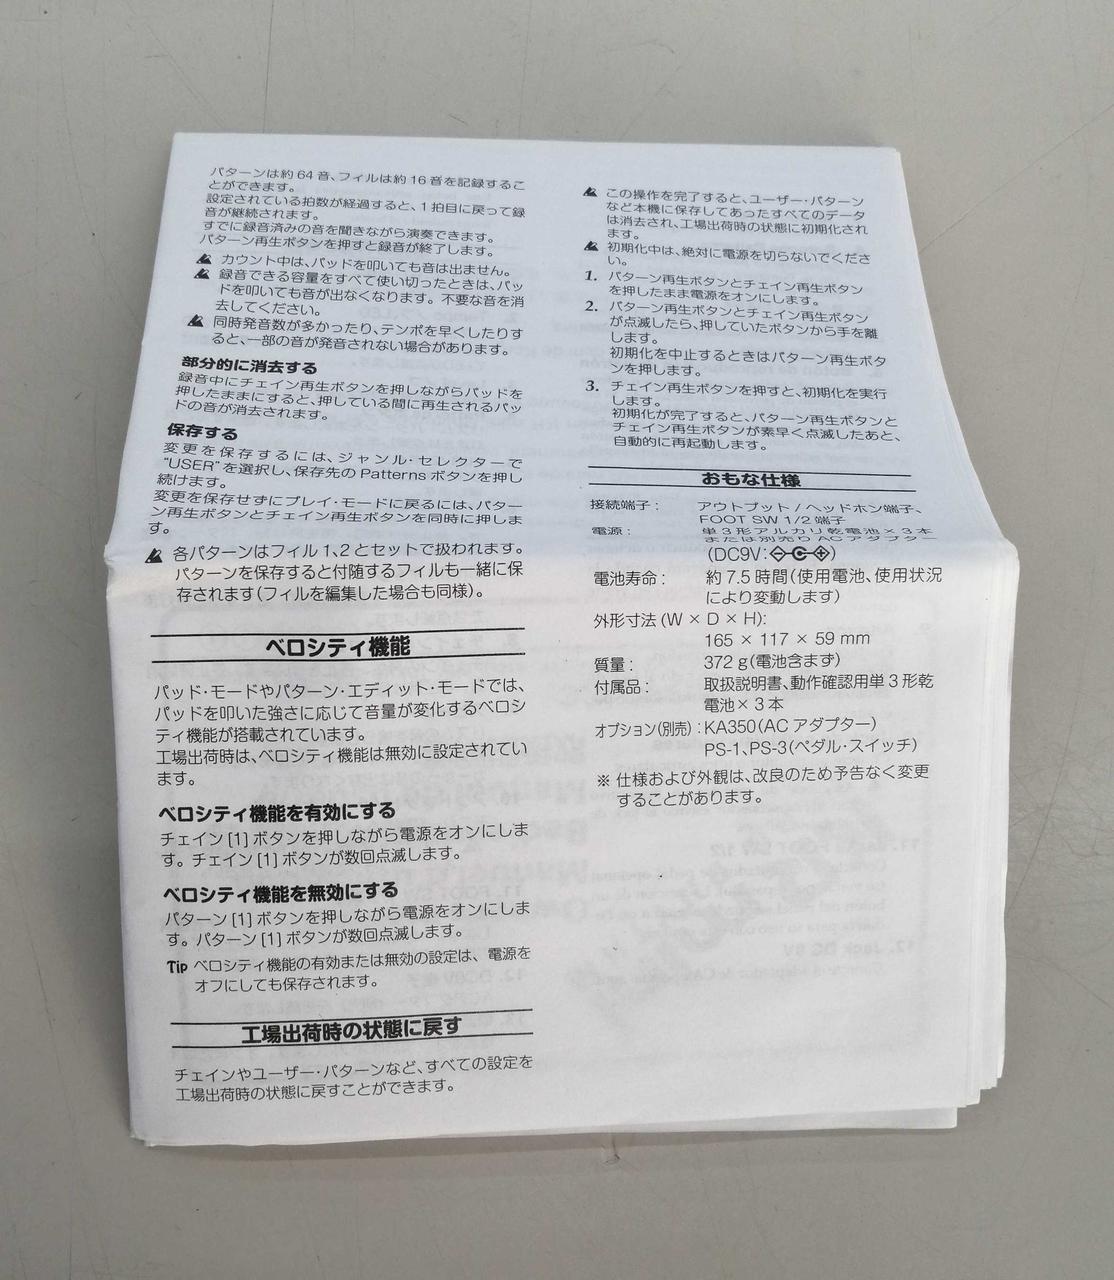 パターンは約64音、フィルは約16音を記録するこ
とができます。
設定されている拍数が経過すると、1拍目に戻って録
音が継続されます。
すでに録音済みの音を聞きながら演奏できます。
パターン再生ボタンを押すと録音が終了します。
カウント中は、パッドを叩いても音は出ません。
録音できる容量をすべて使い切ったときは、パッ
ドを叩いても音が出なくなります。不要な音を消
去してください。
同時発音数が多かったり、テンポを早くしたりす
ると、一部の音が発音されない場合があります。
部分的に消去する
録音中にチェイン再生ボタンを押しながらパッドを
押したままにすると、押している間に再生されるパッ
ドの音が消去されます。
保存する
変更を保存するには、ジャンル・セレクターで
"USER"を選択し、保存先のPatternsボタンを押し
続けます。
変更を保存せずにプレイ・モードに戻るには、パター
ン再生ボタンとチェイン再生ボタンを同時に押しま
す。
各パターンはフィル1、2とセットで扱われます。
パターンを保存すると付随するフィルも一緒に保
存されます(フィルを編集した場合も同様)。
ベロシティ機能
パッド・モードやパターン・エディット・モードでは、
パッドを叩いた強さに応じて音量が変化するベロシ
ティ機能が搭載されています。
工場出荷時は、ベロシティ機能は無効に設定されてい
ます。
ベロシティ機能を有効にする
チェイン[1]ボタンを押しながら電源をオンにしま
す。チェイン[1]ボタンが数回点滅します。
ベロシティ機能を無効にする
パターン[1]ボタンを押しながら電源をオンにしま
す。パターン[1]ボタンが数回点滅します。
Tip ベロシティ機能の有効または無効の設定は、電源を
オフにしても保存されます。
工場出荷時の状態に戻す
チェインやユーザー・パターンなど、すべての設定を
工場出荷時の状態に戻すことができます。
この操作を完了すると、ユーザー・パターン
など本機に保存してあったすべてのデータ
は消去され、工場出荷時の状態に初期化され
ます。
初期化中は、絶対に電源を切らないでくださ
い。
1. パターン再生ボタンとチェイン再生ボタン
を押したまま電源をオンにします。
2. パターン再生ボタンとチェイン再生ボタン
が点滅したら、押していたボタンから手を離
します。
初期化を中止するときはパターン再生ボタ
ンを押します。
3. チェイン再生ボタンを押すと、初期化を実行
します。
初期化が完了すると、パターン再生ボタンと
チェイン再生ボタンが素早く点滅したあと、
自動的に再起動します。
おもな仕様
接続端子： アウトプット/ヘッドホン端子、
FOOT SW 1/2端子
電源： 単3形アルカリ乾電池×3本
または別売りACアダプター
(DC9V:)
電池寿命： 約7.5時間(使用電池、使用状況
により変動します)
外形寸法(W × D × H):
165 × 117 × 59 mm
質量： 372 g(電池含まず)
付属品： 取扱説明書、動作確認用単3形乾
電池×3本
オプション(別売)：KA350(ACアダプター)
PS-1、PS-3(ペダル・スイッチ)
※ 仕様および外観は、改良のため予告なく変更
することがあります。